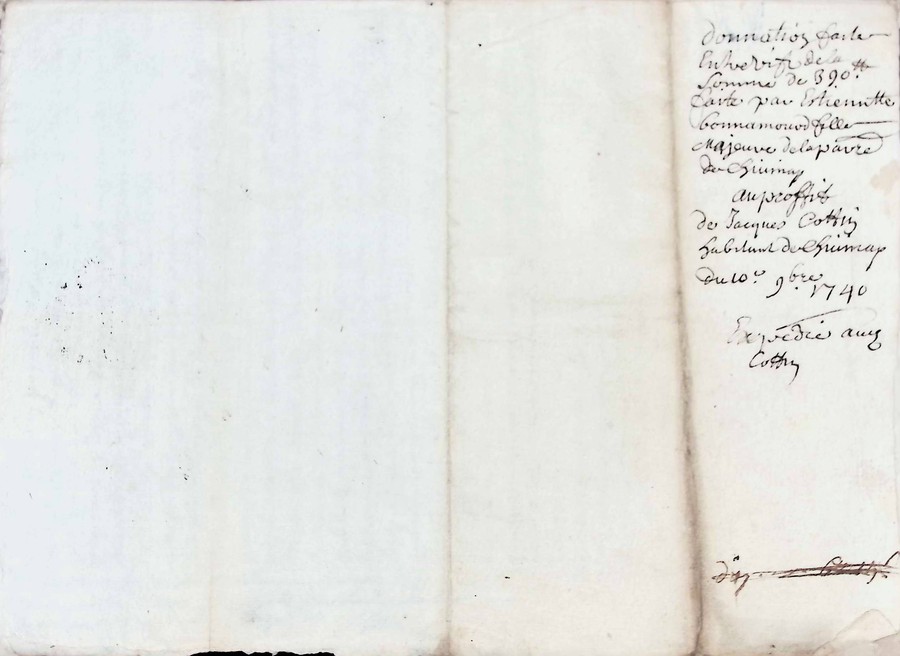 Donnation faite
Entre vifs de la
Somme de 390 ₶
faite par Estiennette
bonnamourd fille
Majeure de la par̄re
de Chiuinas
au proffit
de Jacques Cottin
habitant de Chiuinas
du 10e 9bre 1740
Expédié aud
Cottin